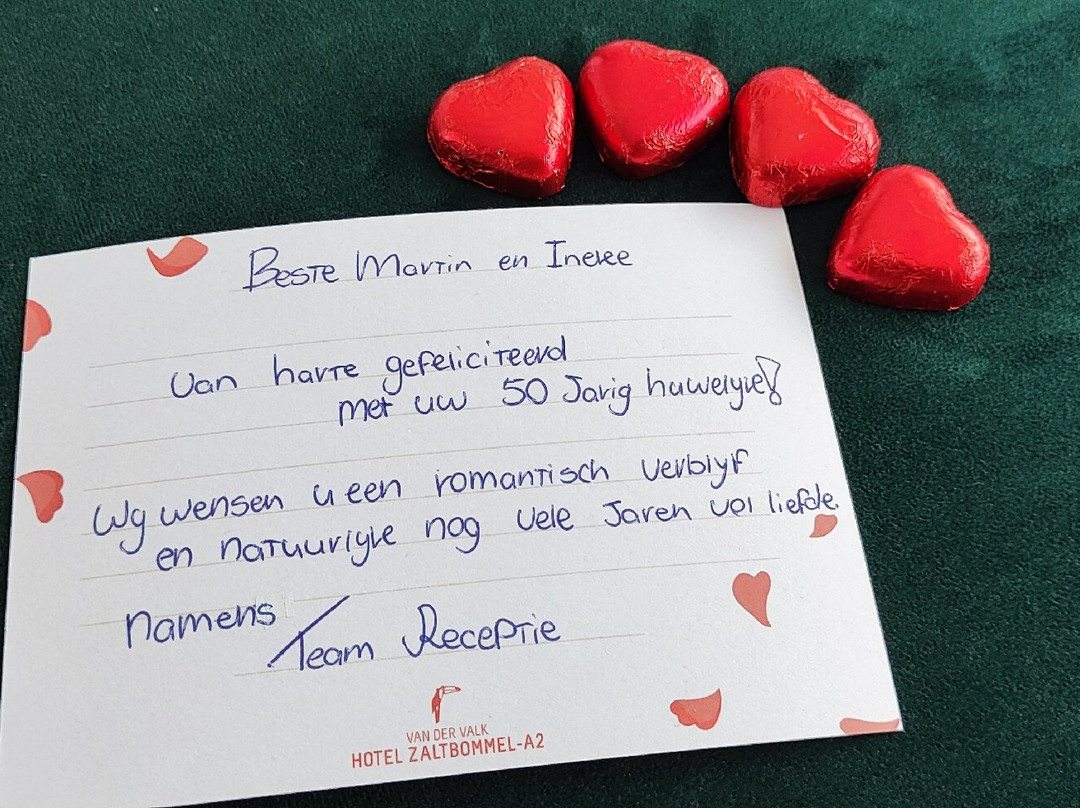 Beste Martin en Ineke
Van harte gefeliciteerd
met uw 50 Jarig huwelijk!
Wij wensen u een romantisch verblijf
en natuurlijk nog vele Jaren vol liefde.
Namens
Team Receptie
VAN DER VALK
HOTEL ZALTBOMMEL-A2